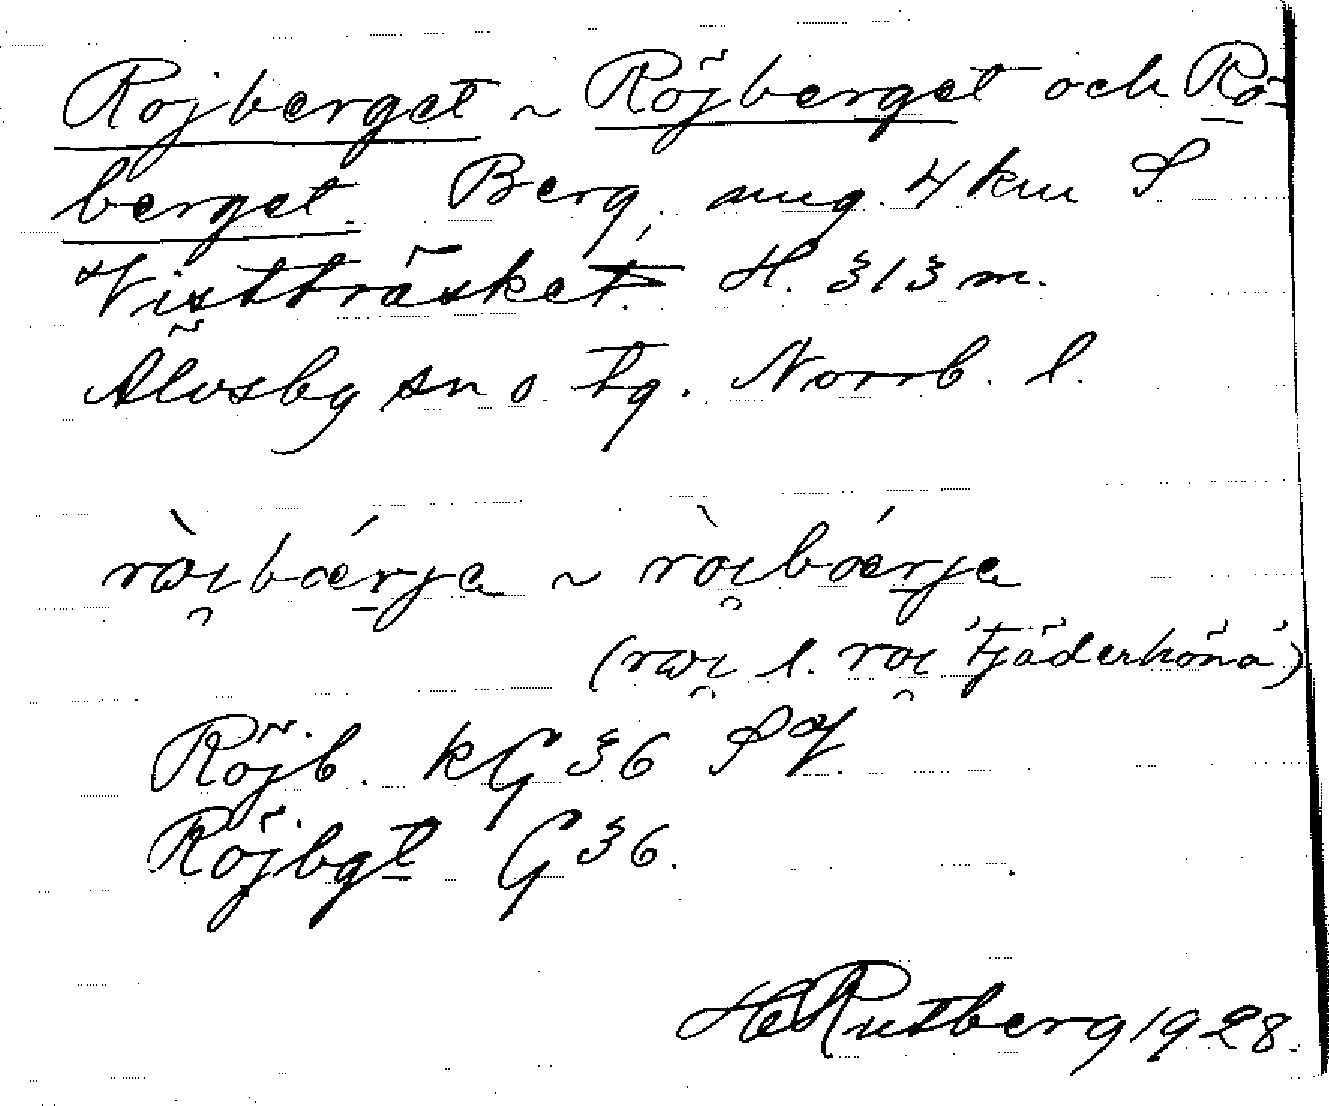 Rojberget ~ Röjberget och Rö-
berget. Berg, aug. 4 km S
Vistträsket. H. 313 m.
Älvsby sn o tg. Norrb. l.
ròi̯bǽrja ~ ròi̯bǽrja
(roi̯ l. roi̯ 'tjäderhöna')
Röjb. kG 36 SV
Röjbgt G 36.
H Rutberg 1928.